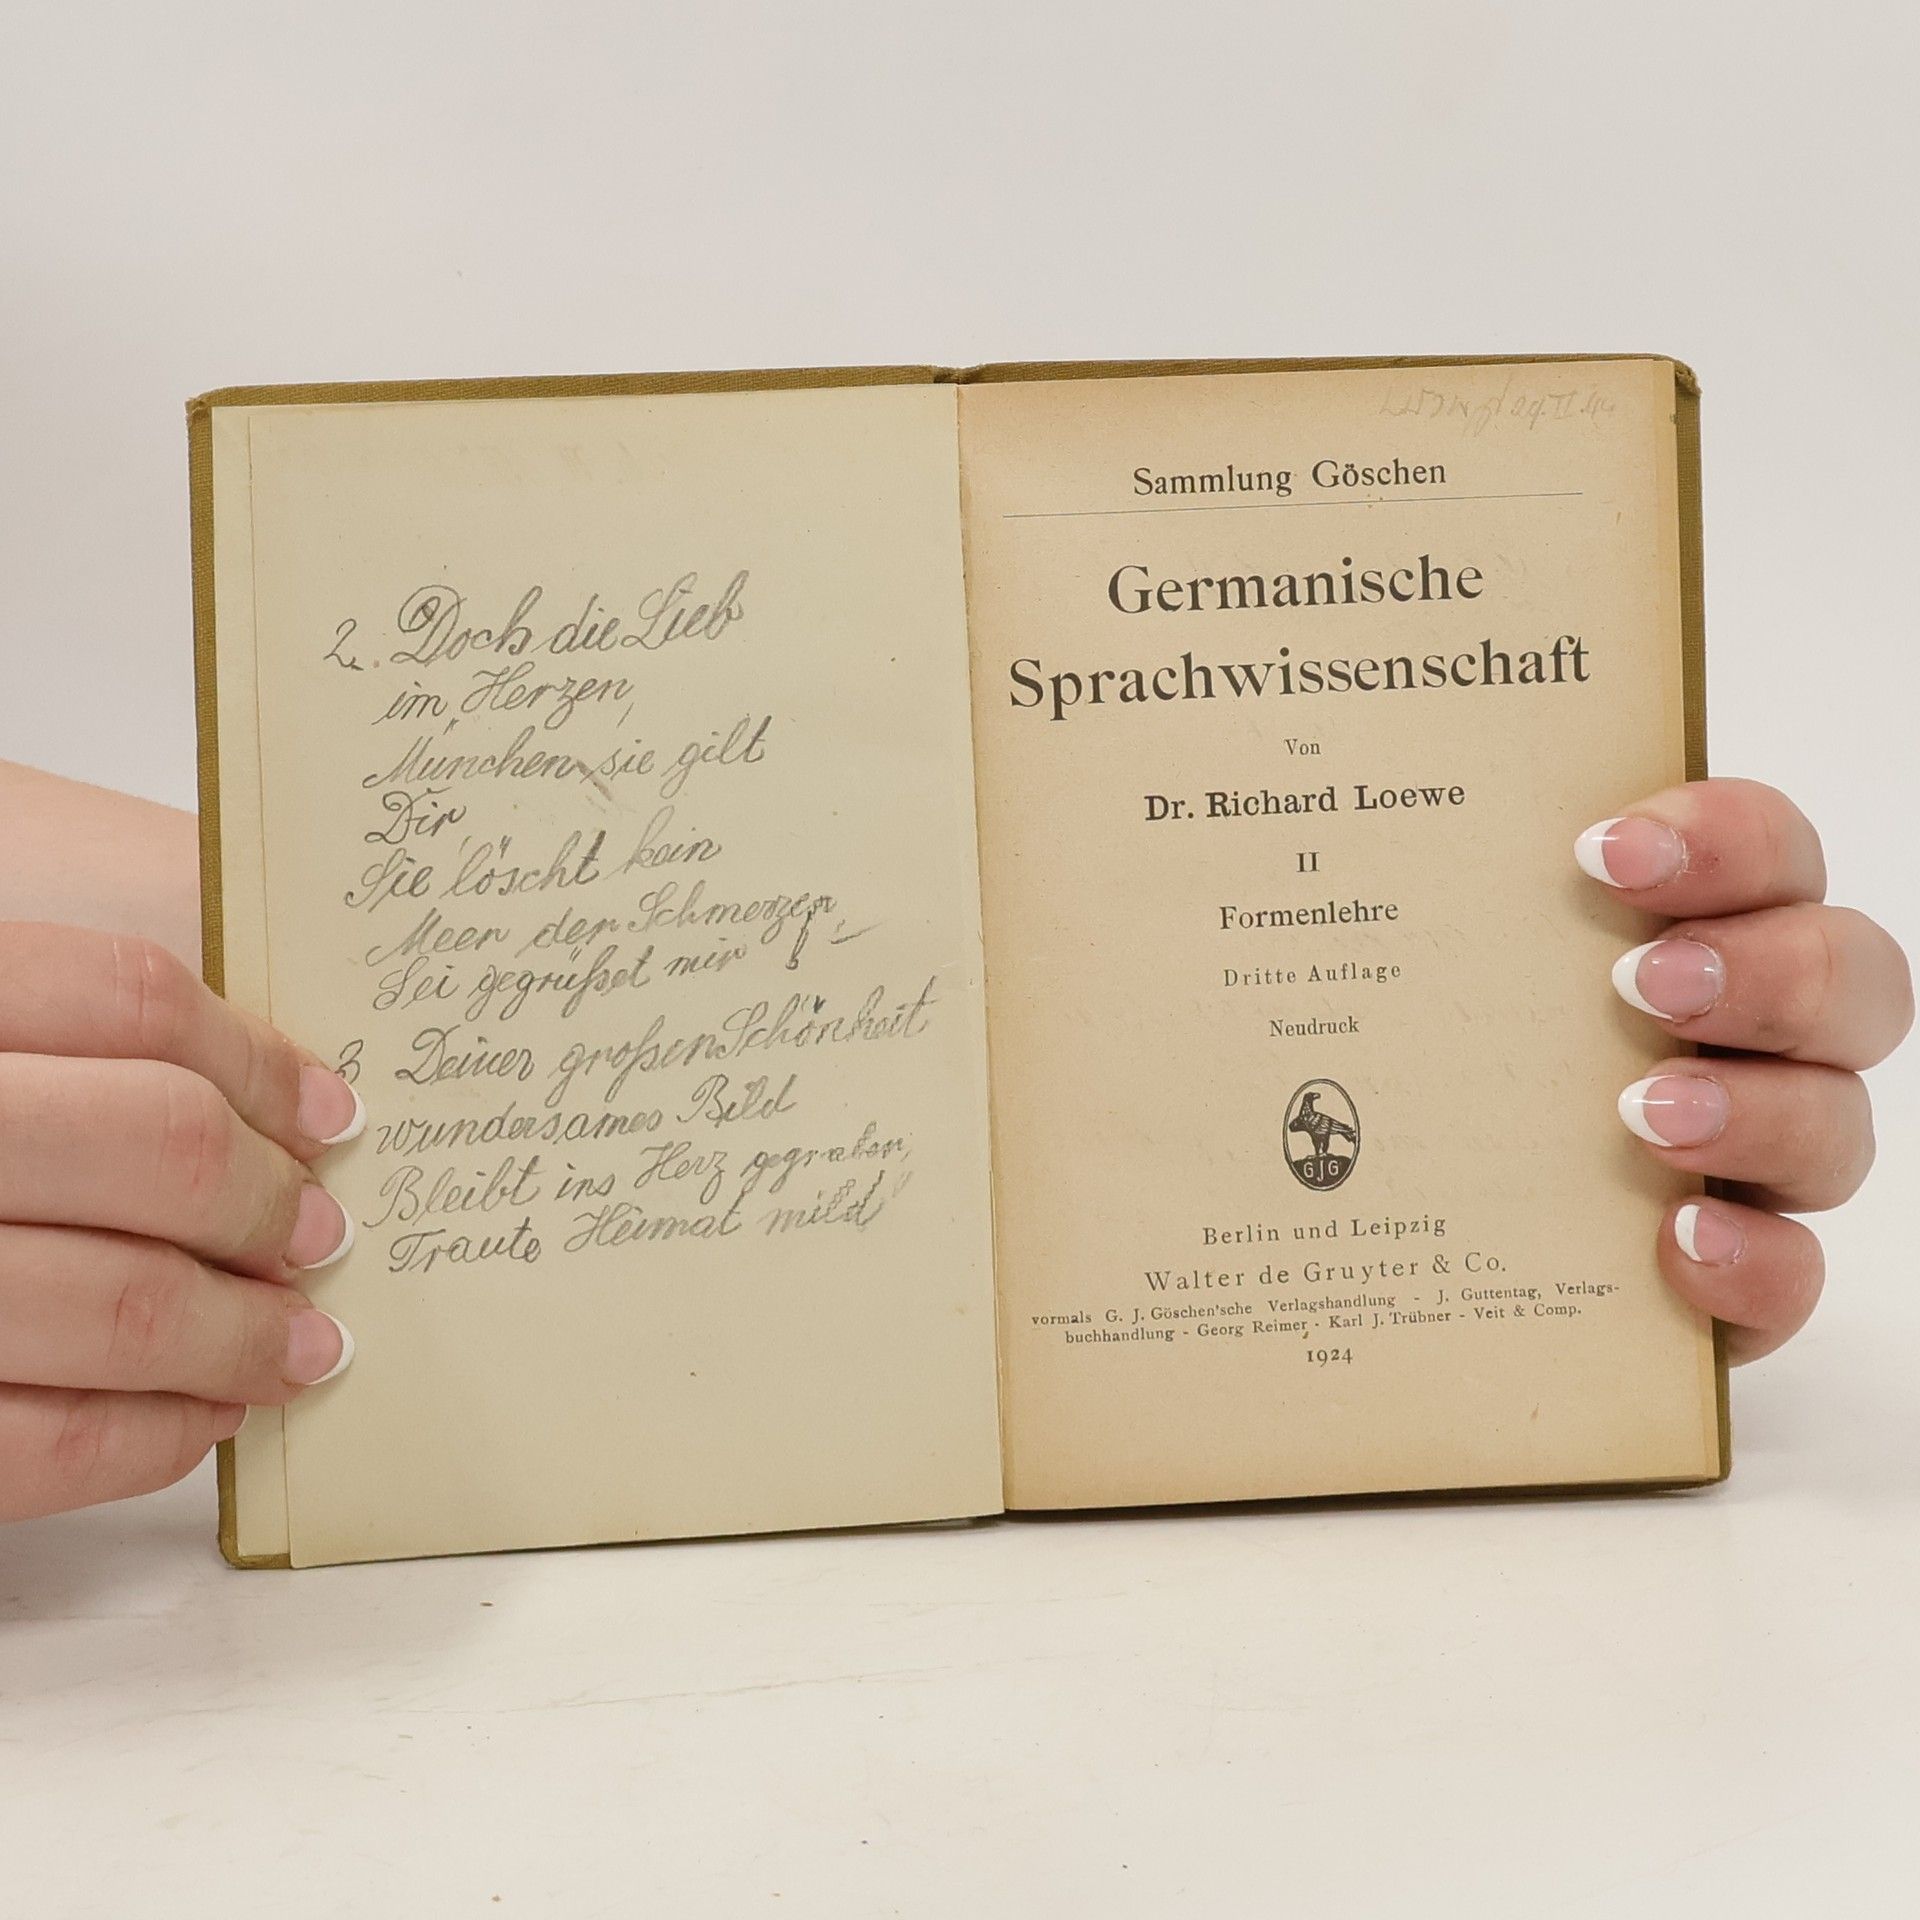 2. Doch die Lieb
im Herzen,
München sie gilt
Dir,
Sie löscht kein
Meer der Schmerzen
Sei gegrüßet mir!
3 Deiner großen Schönheit
wundersames Bild
Bleibt ins Herz gegraben,
Traute Heimat mild
29. II. 44
Sammlung Göschen
Germanische
Sprachwissenschaft
Von
Dr. Richard Loewe
II
Formenlehre
Dritte Auflage
Neudruck
GJG
Berlin und Leipzig
Walter de Gruyter & Co.
vormals G. J. Göschen'sche Verlagshandlung - J. Guttentag, Verlags-
buchhandlung - Georg Reimer - Karl J. Trübner - Veit & Comp.
1924